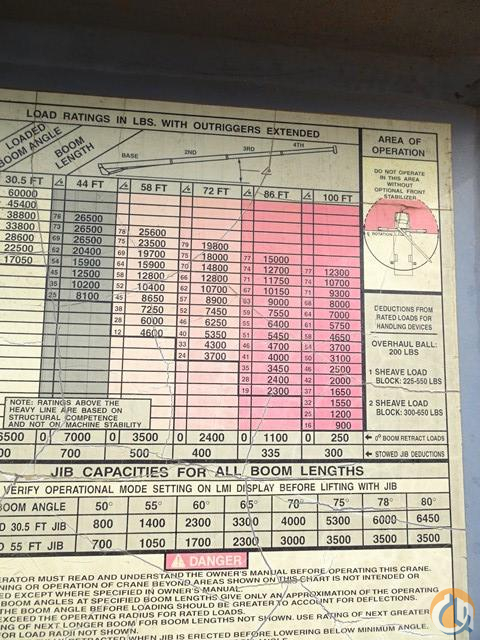 LOAD RATINGS IN LBS. WITH OUTRIGGERS EXTENDED
LOADED BOOM ANGLE
BOOM LENGTH
BASE 2ND 3RD 4TH
30.5 FT 44 FT 58 FT 72 FT 86 FT 100 FT
60000
45400
38800 76 26500
33800 73 26500 78 25600
28600 69 26500 75 23500 79 19800
22500 62 20400 69 19700 75 18000 77 15000
17050 54 15900 64 15900 70 14800 74 12700 77 12300
45 12500 58 12800 66 12800 71 11750 74 10700
35 10200 52 10400 62 10700 67 10150 71 9300
25 8100 45 8650 57 8900 63 9000 68 8000
38 7250 52 7450 59 7550 64 7000
28 6000 46 6250 55 6400 61 5750
12 4600 40 5350 51 5450 58 4650
33 4300 46 4700 54 3700
24 3700 41 4000 50 3100
35 3450 46 2500
28 2400 42 2000
19 2300 37 1650
32 1550
25 1200
16 900
NOTE: RATINGS ABOVE THE
HEAVY LINE ARE BASED ON
STRUCTURAL COMPETENCE
AND NOT ON MACHINE STABILITY
6500 0 7000 0 3500 0 2400 0 1100 0 250 0° BOOM RETRACT LOADS
00 700 500 400 335 300 STOWED JIB DEDUCTIONS
AREA OF
OPERATION
DO NOT OPERATE
IN THIS AREA
WITHOUT
OPTIONAL FRONT
STABILIZER
DEDUCTIONS FROM
RATED LOADS FOR
HANDLING DEVICES
OVERHAUL BALL:
200 LBS
1 SHEAVE LOAD
BLOCK: 225-550 LB
2 SHEAVE LOAD
BLOCK: 300-650 LB
JIB CAPACITIES FOR ALL BOOM LENGTHS
VERIFY OPERATIONAL MODE SETTING ON LMI DISPLAY BEFORE LIFTING WITH JIB
BOOM ANGLE 50° 55° 60° 65° 70° 75° 78° 80°
D 30.5 FT JIB 800 1400 2300 3300 4000 5300 6000 6450
D 55 FT JIB 700 1050 1700 2300 3000 3500 3500 3500
DANGER
ERATOR MUST READ AND UNDERSTAND THE OWNER'S MANUAL BEFORE OPERATING THIS CRANE.
NING OR OPERATION OF CRANE BEYOND AREAS SHOWN ON THIS CHART IS NOT INTENDED OR
ED EXCEPT WHERE SPECIFIED IN OWNER'S MANUAL.
BOOM ANGLES AT SPECIFIED BOOM LENGTHS GIVE ONLY AN APPROXIMATION OF THE OPERATING
THE BOOM ANGLE BEFORE LOADING SHOULD BE GREATER TO ACCOUNT FOR DEFLECTIONS.
EXCEED THE OPERATING RADIUS FOR RATED LOADS.
NG OF NEXT LONGER BOOM FOR BOOM LENGTHS NOT SHOWN. USE RATING OF NEXT GREATER
FOR LOAD RADII NOT SHOWN.